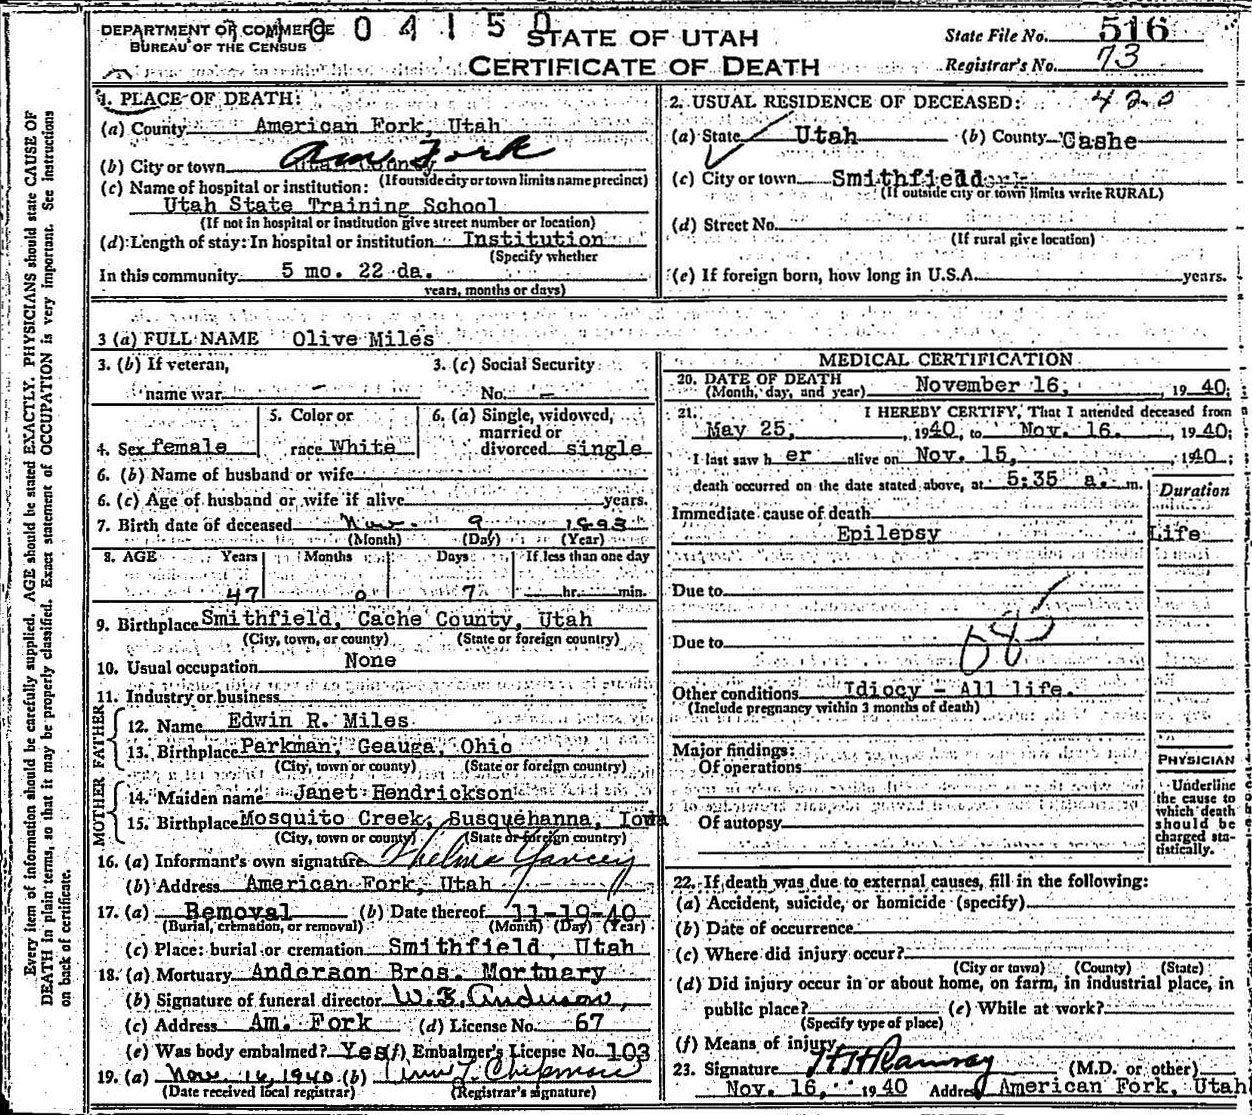 DEPARTMENT OF COMMERCE
BUREAU OF THE CENSUS
4004150
STATE OF UTAH
CERTIFICATE OF DEATH
State File No. 516
Registrar's No. 73
Every item of information should be carefully supplied. AGE should be stated EXACTLY. PHYSICIANS should state CAUSE OF
DEATH in plain terms, so that it may be properly classified. Exact statement of OCCUPATION is very important. See instructions
on back of certificate.
1. PLACE OF DEATH:
(a) County American Fork, Utah
Am. Fork
(b) City or town Utah County
(If outside city or town limits name precinct)
(c) Name of hospital or institution:
Utah State Training School
(If not in hospital or institution give street number or location)
(d) Length of stay: In hospital or institution Institution
(Specify whether
In this community 5 mo. 22 da.
years, months or days)
2. USUAL RESIDENCE OF DECEASED: 420
(a) State Utah (b) County Cashe
(c) City or town Smithfield
(If outside city or town limits write RURAL)
(d) Street No.
(If rural give location)
(e) If foreign born, how long in U.S.A. years.
3 (a) FULL NAME Olive Miles
3. (b) If veteran, 3. (c) Social Security
name war – No. –
4. Sex female
5. Color or
race White
6. (a) Single, widowed,
married or
divorced single
6. (b) Name of husband or wife
6. (c) Age of husband or wife if alive years.
7. Birth date of deceased Nov. 9 1893
(Month) (Day) (Year)
8. AGE Years Months Days If less than one day
47 0 7 hr. min.
9. Birthplace Smithfield, Cache County, Utah
(City, town, or county) (State or foreign country)
10. Usual occupation None
11. Industry or business
FATHER
12. Name Edwin R. Miles
13. Birthplace Parkman, Geauga, Ohio
(City, town or county) (State or foreign country)
MOTHER
14. Maiden name Janet Hendrickson
15. Birthplace Mosquito Creek, Susquehanna, Iowa
(City, town or county) (State or foreign country)
16. (a) Informant's own signature Thelma Yancey
(b) Address American Fork, Utah
17. (a) Removal (b) Date thereof 11-19-40
(Burial, cremation, or removal) (Month) (Day) (Year)
(c) Place: burial or cremation Smithfield, Utah
18. (a) Mortuary Anderson Bros. Mortuary
(b) Signature of funeral director W. E. Anderson,
(c) Address Am. Fork (d) License No. 67
(e) Was body embalmed? Yes (f) Embalmer's License No. 103
19. (a) Nov. 16, 1940 (b) Chipman
(Date received local registrar) (Registrar's signature)
MEDICAL CERTIFICATION
20. DATE OF DEATH
(Month, day, and year) November 16, 1940.
21. I HEREBY CERTIFY, That I attended deceased from
May 25, 1940, to Nov. 16. 1940;
I last saw h er alive on Nov. 15, 1940;
death occurred on the date stated above, at 5:35 a. m.
Duration
Immediate cause of death
Epilepsy Life
Due to
Due to
Other conditions Idiocy – All life.
(Include pregnancy within 3 months of death)
Major findings:
Of operations
Of autopsy
PHYSICIAN
Underline
the cause to
which death
should be
charged sta-
tistically.
22. If death was due to external causes, fill in the following:
(a) Accident, suicide, or homicide (specify)
(b) Date of occurrence
(c) Where did injury occur?
(City or town) (County) (State)
(d) Did injury occur in or about home, on farm, in industrial place, in
public place? (e) While at work?
(Specify type of place)
(f) Means of injury
23. Signature H H Ramsay (M.D. or other)
Nov. 16, 1940 Address American Fork, Utah